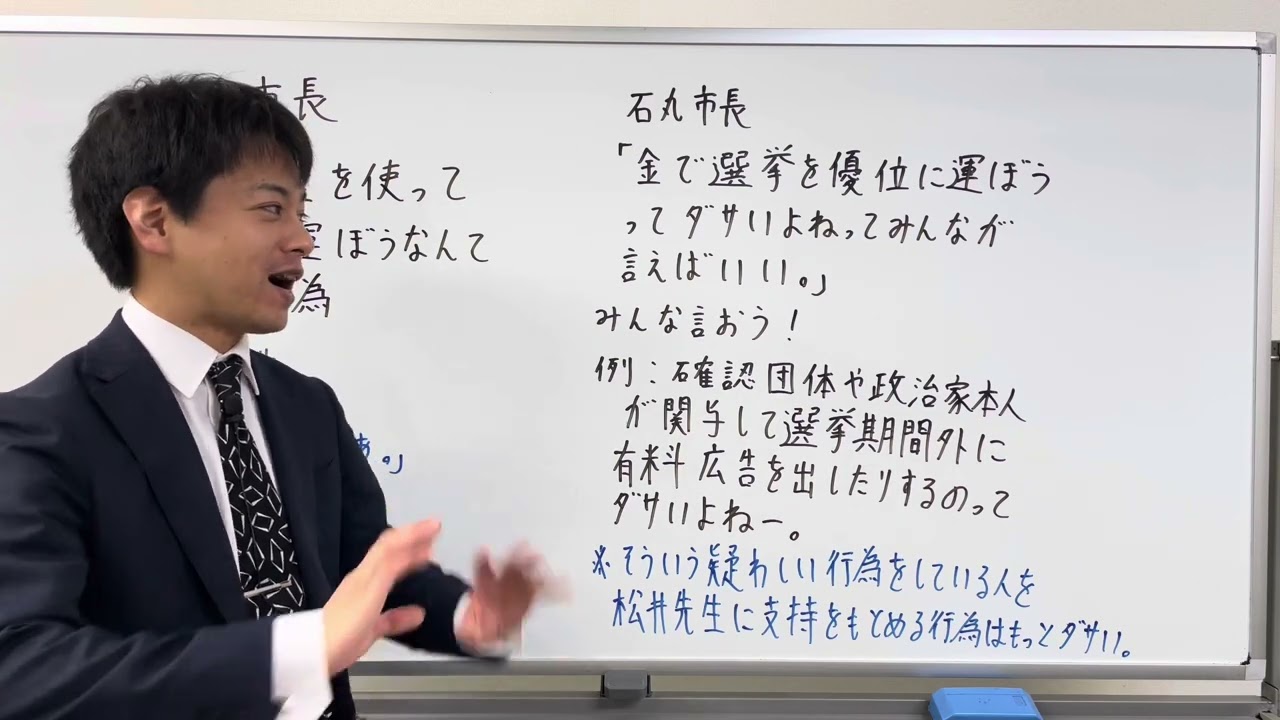 市長
を使って
ぼうなんて
為
あ。」
石丸市長
「金で選挙を優位に運ぼう
ってダサいよねってみんなが
言えばいい。」
みんな言おう!
例:確認団体や政治家本人
が関与して選挙期間外に
有料広告を出したりするのって
ダサいよねー。
※そういう疑わしい行為をしている人を
松井先生に支持をもとめる行為はもっとダサい。